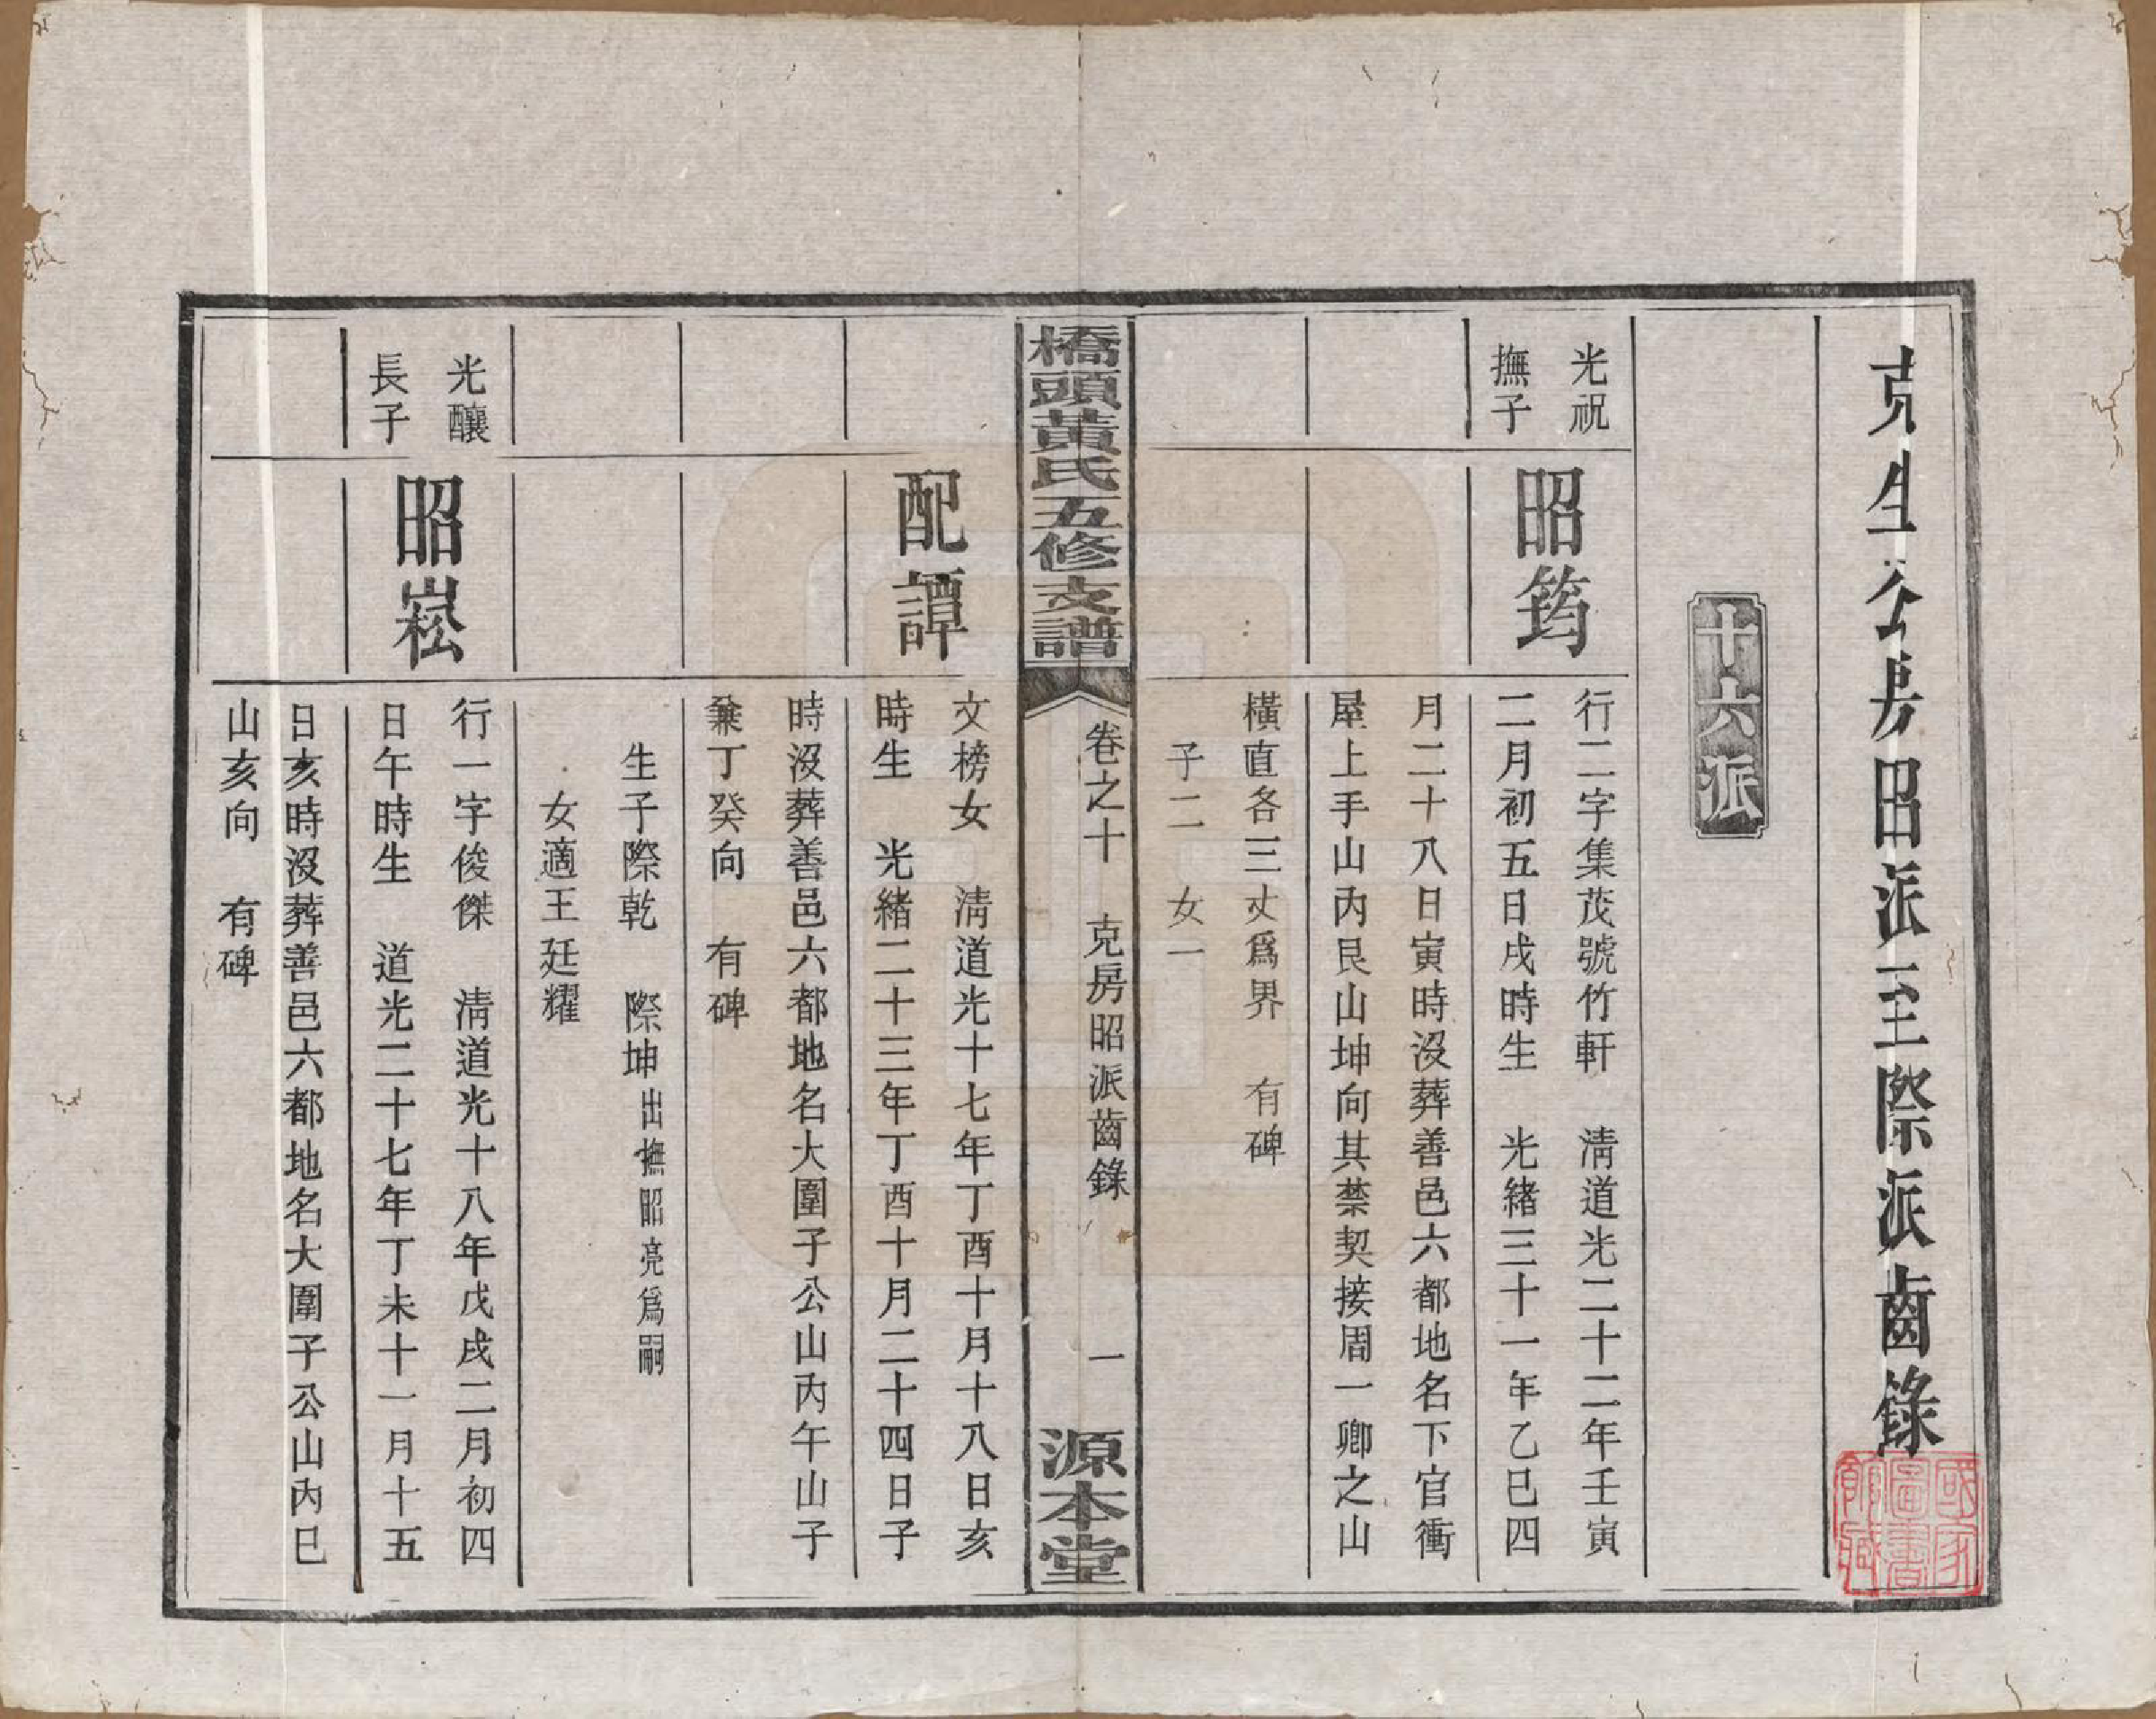 克生公房昭派至際派齒錄
十六派
光祝
撫子
昭筠
行二字集茂號竹軒 淸道光二十二年壬寅
二月初五日戌時生 光緖三十一年乙巳四
月二十八日寅時沒葬善邑六都地名下官衝
屋上手山內艮山坤向其禁契接周一卿之山
橫直各三丈爲界 有碑
子二 女一
橋頭黃氏五修支譜
卷之十 克房昭派齒錄
一
源本堂
配譚
文榜女 淸道光十七年丁酉十月十八日亥
時生 光緖二十三年丁酉十月二十四日子
時沒葬善邑六都地名大圍子公山內午山子
兼丁癸向 有碑
生子際乾 際坤出撫昭亮爲嗣
女適王廷耀
光釀
長子
昭崧
行一字俊傑 淸道光十八年戊戌二月初四
日午時生 道光二十七年丁未十一月十五
日亥時沒葬善邑六都地名大圍子公山內巳
山亥向 有碑
國家
圖書
館藏